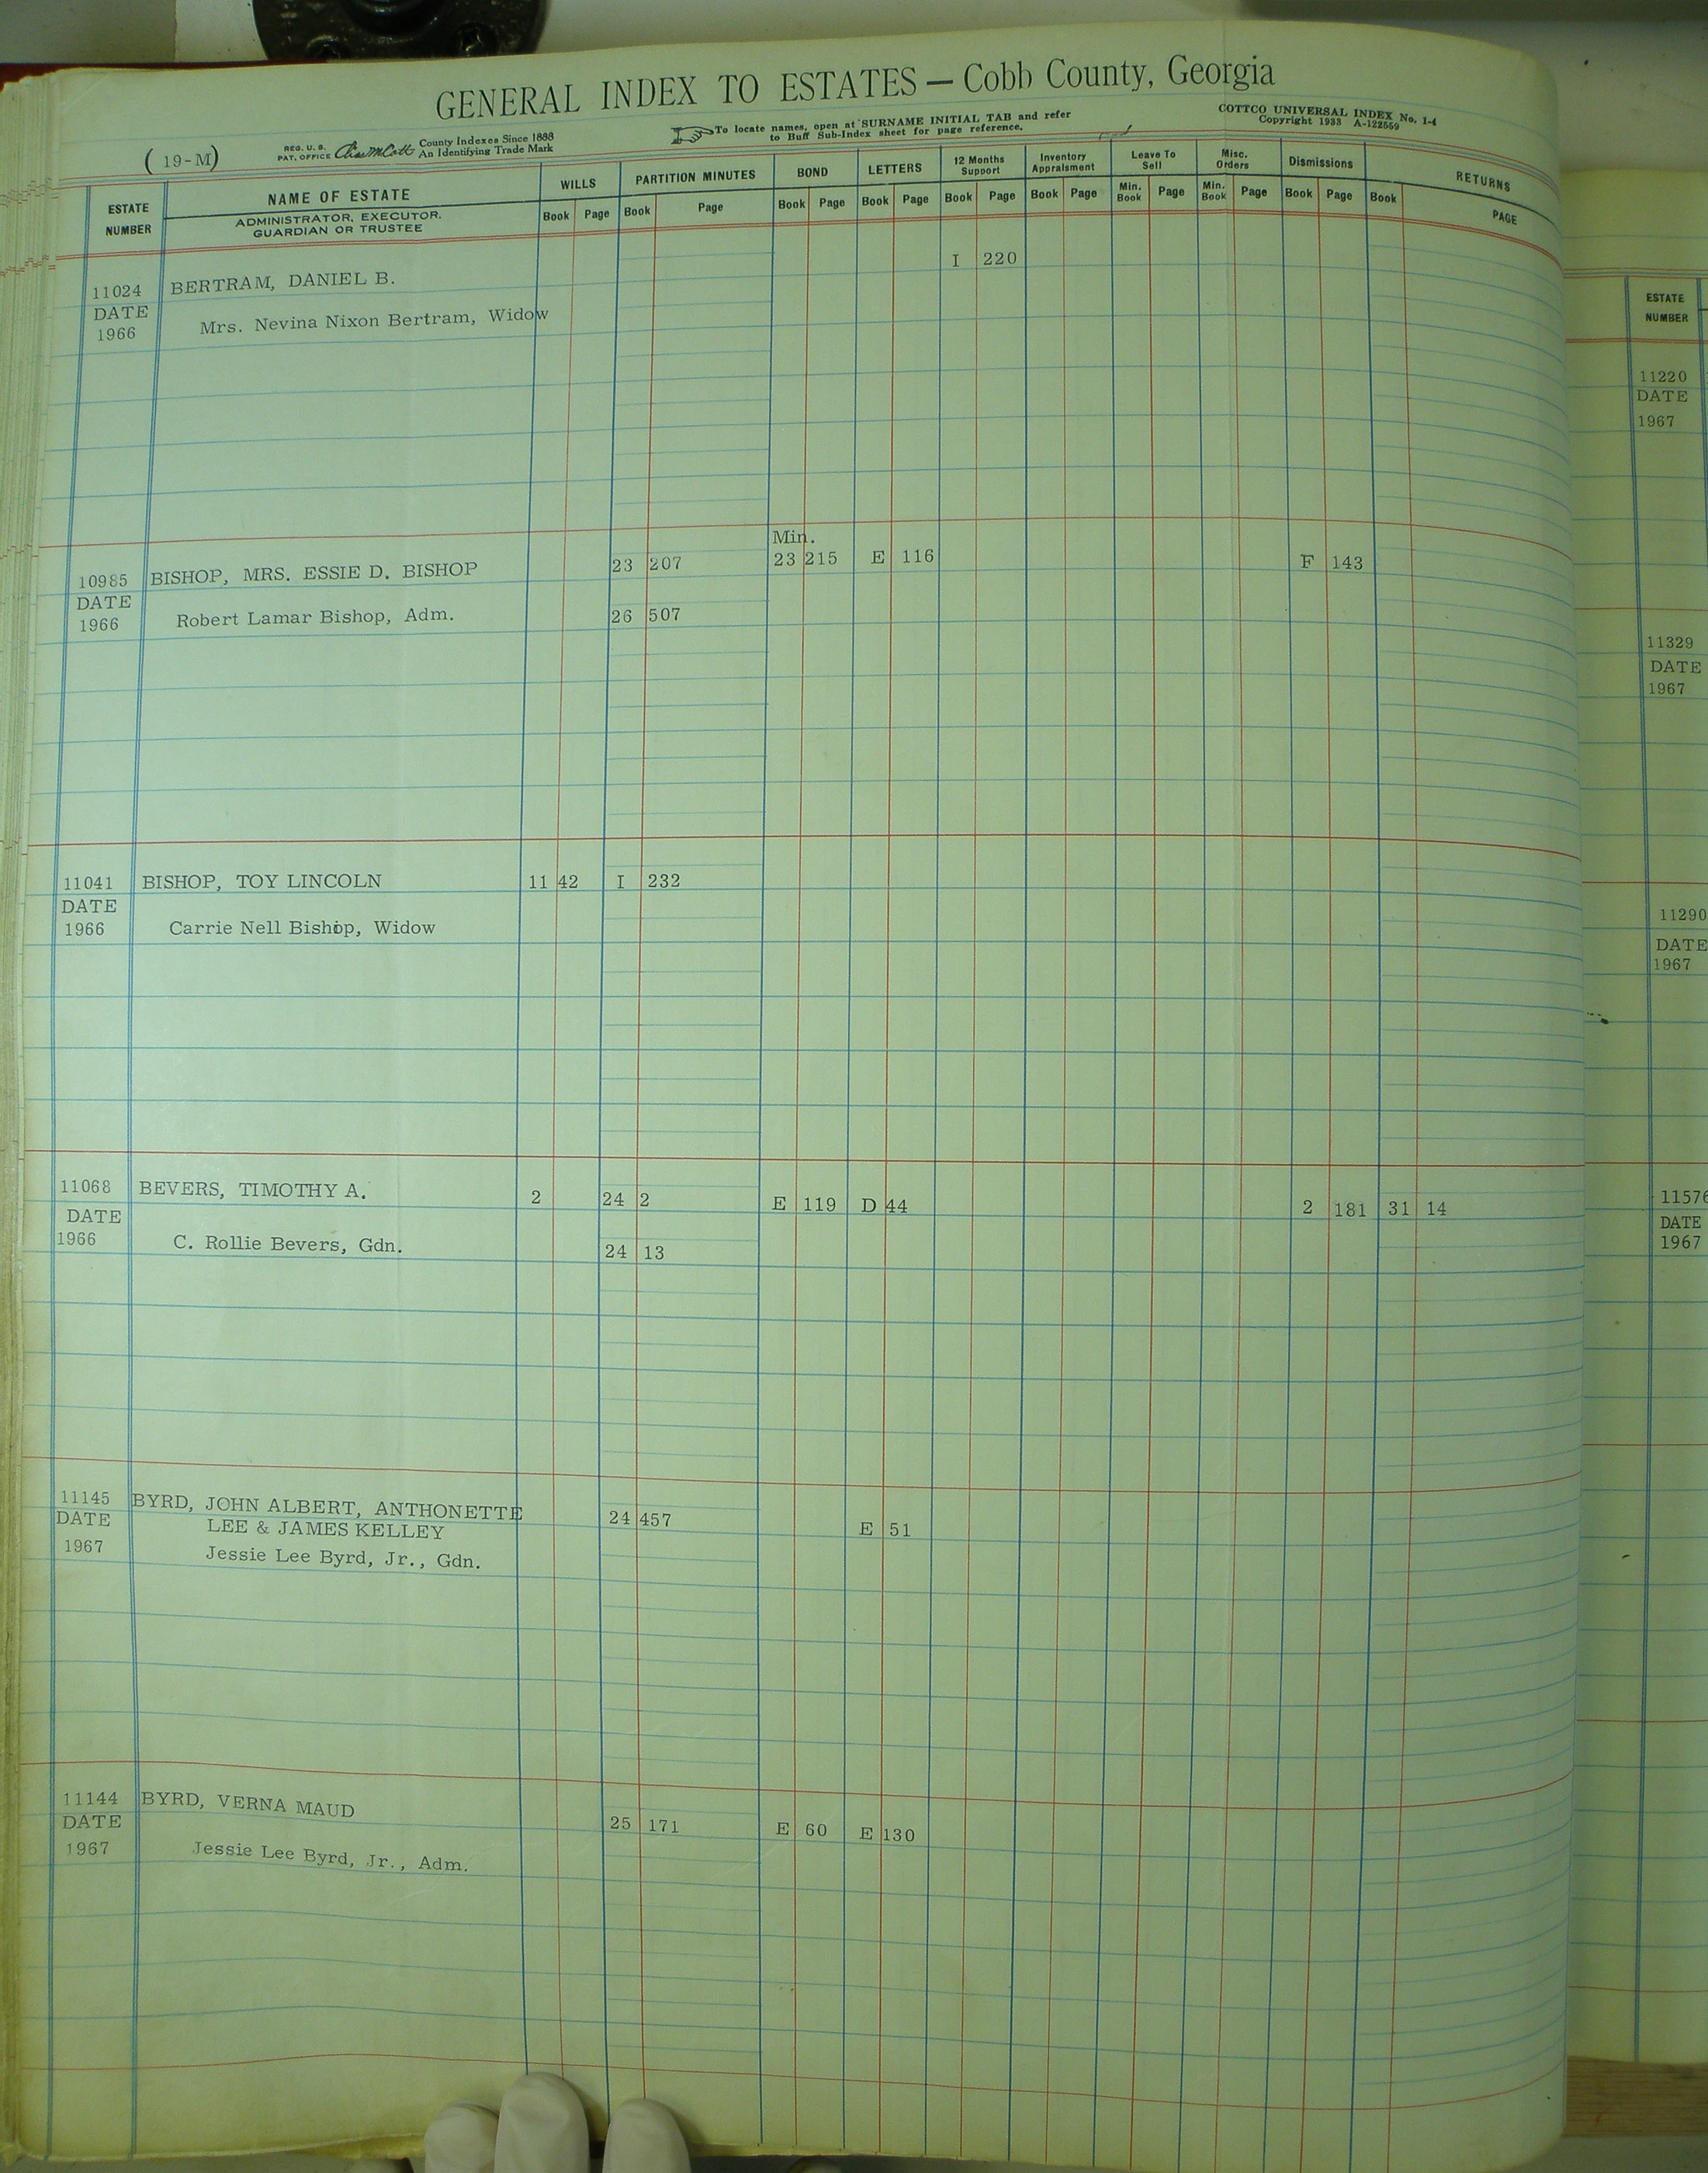 GENERAL INDEX TO ESTATES — Cobb County, Georgia
COTTCO UNIVERSAL INDEX No. 1-4
Copyright 1933 A-122559
To locate names, open at SURNAME INITIAL TAB and refer
to Buff Sub-Index sheet for page reference.
REG. U. S.
PAT. OFFICE
County Indexes Since 1888
An Identifying Trade Mark
(19-M)
ESTATE NUMBER
NAME OF ESTATE
ADMINISTRATOR, EXECUTOR.
GUARDIAN OR TRUSTEE
WILLS PARTITION MINUTES BOND LETTERS 12 Months Support Inventory Appraisment Leave To Sell Misc. Orders Dismissions RETURNS
Book Page Book Page Book Page Book Page Book Page Book Page Min. Book Page Min. Book Page Book Page Book PAGE
I 220
11024 BERTRAM, DANIEL B.
DATE
1966 Mrs. Nevina Nixon Bertram, Widow
Min.
10985 BISHOP, MRS. ESSIE D. BISHOP 23 207 23 215 E 116 F 143
DATE
1966 Robert Lamar Bishop, Adm. 26 507
11041 BISHOP, TOY LINCOLN 11 42 I 232
DATE
1966 Carrie Nell Bishop, Widow
11068 BEVERS, TIMOTHY A. 2 24 2 E 119 D 44 2 181 31 14
DATE
1966 C. Rollie Bevers, Gdn. 24 13
11145 BYRD, JOHN ALBERT, ANTHONETTE 24 457 E 51
DATE LEE & JAMES KELLEY
1967 Jessie Lee Byrd, Jr., Gdn.
11144 BYRD, VERNA MAUD 25 171 E 60 E 130
DATE
1967 Jessie Lee Byrd, Jr., Adm.
ESTATE
NUMBER
11220
DATE
1967
11329
DATE
1967
11290
DATE
1967
11576
DATE
1967